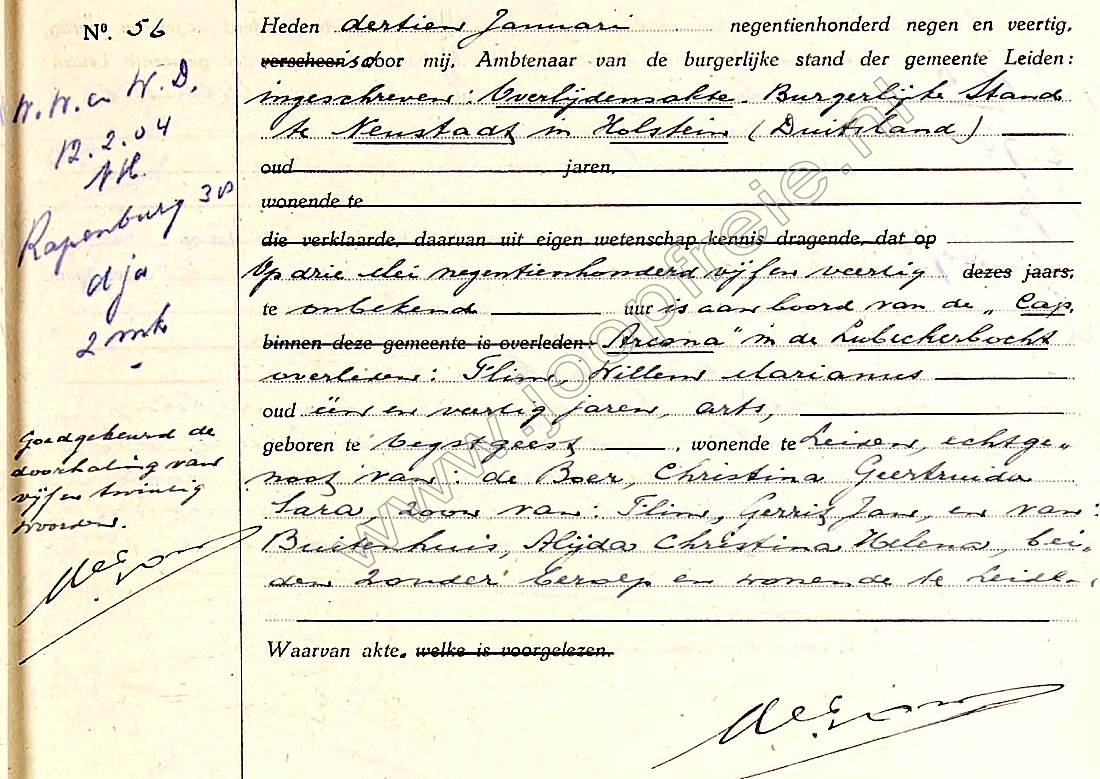 Nº. 56
W.W. en W.D.
12.2.04
NH.
Rapenburg 38
d ja
2 mk
Goedgekeurd de
doorhaling van
vijf en twintig
woorden.
Heden dertien Januari negentienhonderd negen en veertig,
verscheen is door mij, Ambtenaar van de burgerlijke stand der gemeente Leiden:
ingeschreven: Overlijdensakte. Burgerlijke Stand
te Neustadt in Holstein (Duitsland)
oud jaren,
wonende te
die verklaarde, daarvan uit eigen wetenschap kennis dragende, dat op
Op drie Mei negentienhonderd vijf en veertig dezes jaars,
te onbekend uur is aan boord van de „Cap.
binnen deze gemeente is overleden: Arcona" in de Lubeckerbocht
overleden: Flim, Willem Marianus
oud één en veertig jaren, arts,
geboren te Oegstgeest, wonende te Leiden, echtge„
noot van: de Boer, Christina Geertruida
Sara, zoon van: Flim, Gerrit Jan, en van:
Buitenhuis, Alijda Christina Helena, bei„
den zonder beroep en wonende te Leiden.
Waarvan akte. welke is voorgelezen.
www.joopfreie.nl